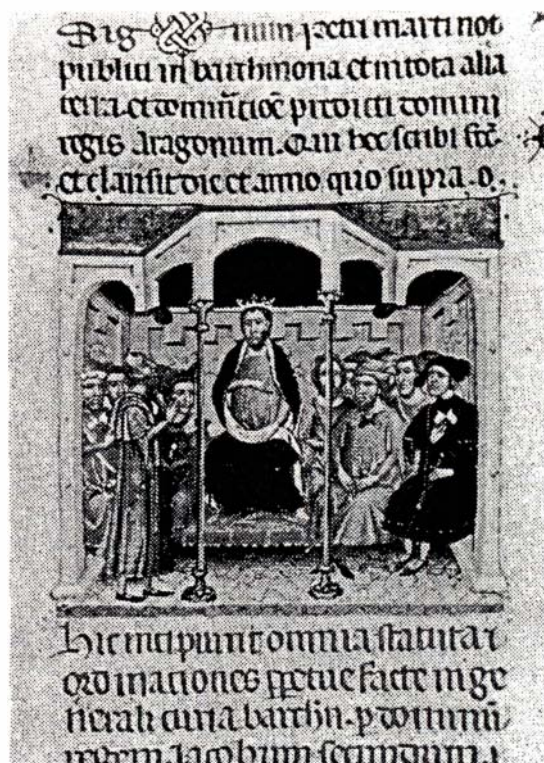 Sig num petri marti not
publici in barchinona et in tota alia
terra et dominacioē predicti domini
regis Aragonum. Qui hec scribi fec̄
et clausit die et anno quo supra.
Hic incipiunt omnia statuta ⁊
ordinaciones perpetue facte in ge
nerali curia barchn̄. p dominū
regem Jacobum secundum ⁊